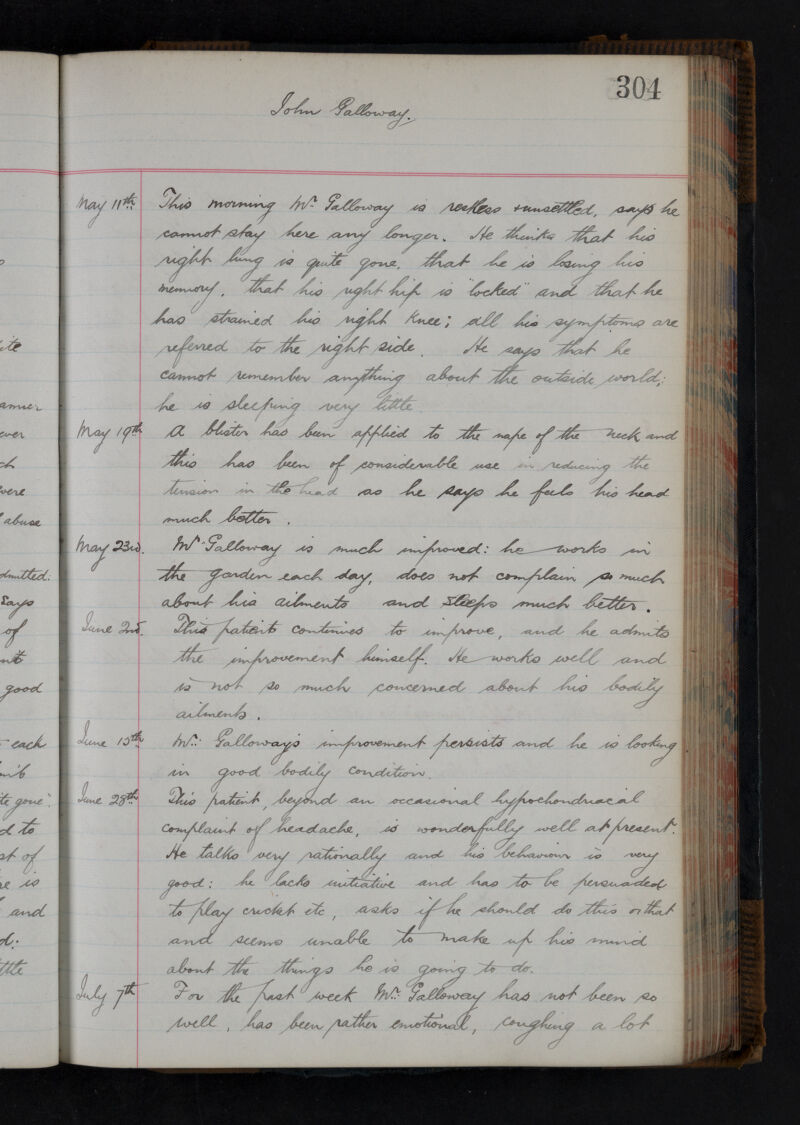 304
John Galloway.
May 11th. This morning Mr. Galloway is restless + unsettled, says he
cannot stay here any longer. He thinks that his
right lung is quite gone, that he is losing his
memory, that his right hip is "locked" and that he
has strained his right knee; all his symptoms are
referred to the right side. He says that he
cannot remember anything about the outside world;
he is sleeping very little
May 19th A blister has been applied to the nape of the neck and
this has been of considerable use in reducing the
tension in the head as he says he feels his head
much better.
May 23rd. Mr Galloway is much improved: he works in
the garden each day, does not complain so much
about his ailments and sleeps much better.
June 2nd. This patient continues to improve, and he admits
the improvement himself. He works well and
is not so much concerned about his bodily
ailments.
June 15th Mr. Galloway's improvement persists and he is looking
in good bodily condition.
June 28th This patient, beyond an occasional hypochondriacal
complaint of headache, is wonderfully well at present.
He talks very rationally and his behaviour is very
good: he lacks initiative and has to be persuaded
to play cricket etc, asks if he should do this or that
and seems unable to make up his mind
about the things he is going to do.
July 7th For the past week Mr. Galloway has not been so
well, has been rather emotional, coughing a lot